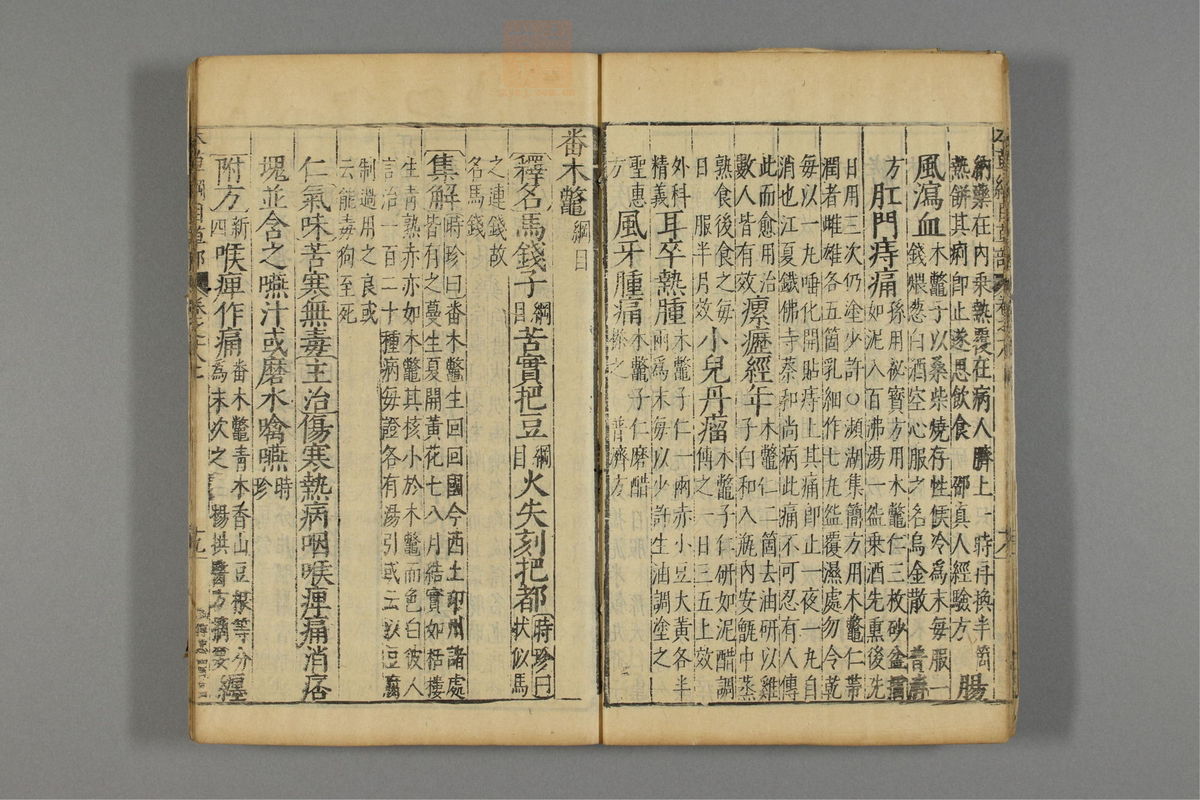 納藥在内乘熱覆在病人臍上一時再換半箇
熱餅其痢即止遂思飲食 邵真人經驗方 腸
風瀉血 木鱉子以桑柴燒存性候冷爲末毎服一
錢煨葱白酒空心服之名烏金散 普濟
方 肛門痔痛 孫用祕寶方用木鱉仁三枚砂盆擂
如泥入百沸湯一盌乗酒先熏後洗
日用三次仍塗少許○瀕湖集簡方用木鱉仁帶
潤者雌雄各五箇乳細作七丸盌覆濕處勿令乾
毎以一丸唾化開貼痔上其痛即止一夜一丸自
消也江夏鐵佛寺蔡和尚病此痛不可忍有人傳
此而愈用治
數人皆有效 瘰癧經年 木鱉仁二箇去油研以雞
子白和入瓶内安甑中蒸
熟食後食之毎
日一服半月效 小兒丹瘤 木鱉子仁研如泥醋調
傅之一日三五上效
外科
精義 耳卒熱腫 木鱉子仁一兩赤小豆大黄各半
兩爲末毎以少許生油調塗之
聖惠
方 風牙腫痛 木鱉子仁磨醋
搽之 普濟方
番木鱉 綱目
釋名馬錢子 綱目 苦實把豆 綱目 火失刻把都 時珍曰
狀似馬
之連錢故
名馬錢
集解 時珍曰番木鱉生回回國今西土邛州諸處
皆有之蔓生夏開黄花七八月結實如栝樓
生青熟赤亦如木鱉其核小於木鱉而色白彼人
言治一百二十種病毎證各有湯引或云以豆腐
制過用之良或
云能毒狗至死
仁氣味苦寒無毒主治傷寒熱病咽喉痺痛消痞
塊並含之嚥汁或磨水噙嚥 時珍
附方 新四 喉痺作痛 番木鱉青木香山豆根等分
爲末吹之 楊拱醫方摘要 纏